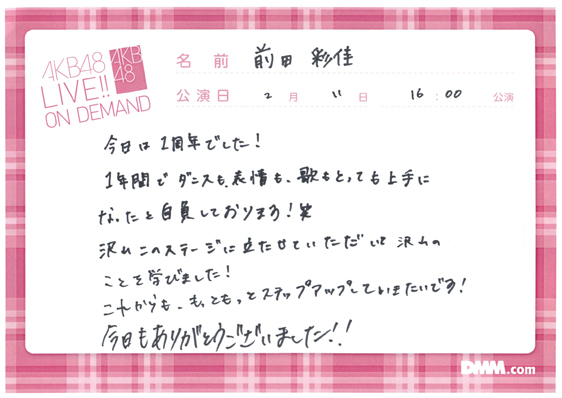 AKB48
LIVE!!
ON DEMAND
AKB
48
名前 前田 彩佳
公演日 2月 11日 16:00 公演
今日は1周年でした!
1年間でダンスも、表情も、歌もとっても上手に
なったと自負しております!笑
沢山このステージに立たせていただいて沢山の
ことを学びました!
これからも、もっともっとステップアップしていきたいです!
今日もありがとうございました!!
DMM.com